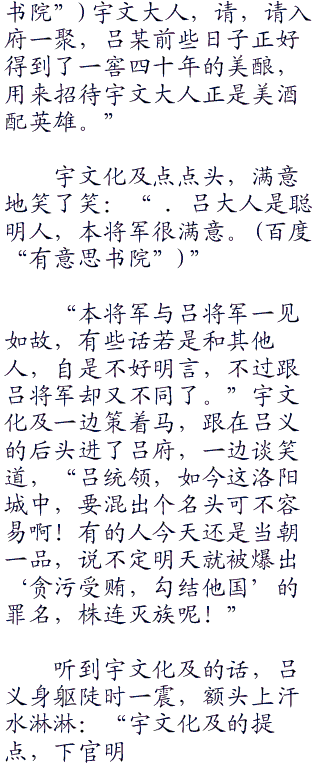 书院”)宇文大人，请，请入
府一聚，吕某前些日子正好
得到了一窖四十年的美酿，
用来招待宇文大人正是美酒
配英雄。”
宇文化及点点头，满意
地笑了笑：“．吕大人是聪
明人，本将军很满意。(百度
“有意思书院”)”
“本将军与吕将军一见
如故，有些话若是和其他
人，自是不好明言，不过跟
吕将军却又不同了。”宇文
化及一边策着马，跟在吕义
的后头进了吕府，一边谈笑
道，“吕统领，如今这洛阳
城中，要混出个名头可不容
易啊！有的人今天还是当朝
一品，说不定明天就被爆出
‘贪污受贿，勾结他国’的
罪名，株连灭族呢！”
听到宇文化及的话，吕
义身躯陡时一震，额头上汗
水淋淋：“宇文化及的提
点，下官明